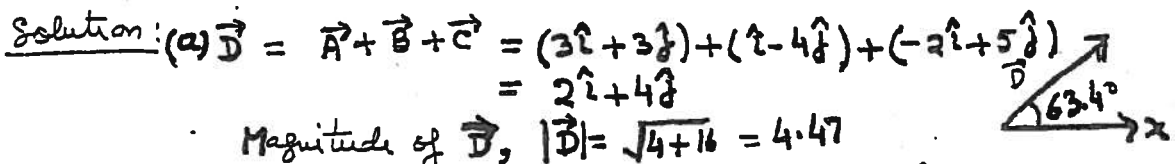 Solution: (a) D⃗ = A⃗ + B⃗ + C⃗ = (3î + 3ĵ) + (î - 4ĵ) + (-2î + 5ĵ)
= 2î + 4ĵ
Magnitude of D⃗, |D⃗| = √4+16 = 4.47
D⃗
63.4°
x